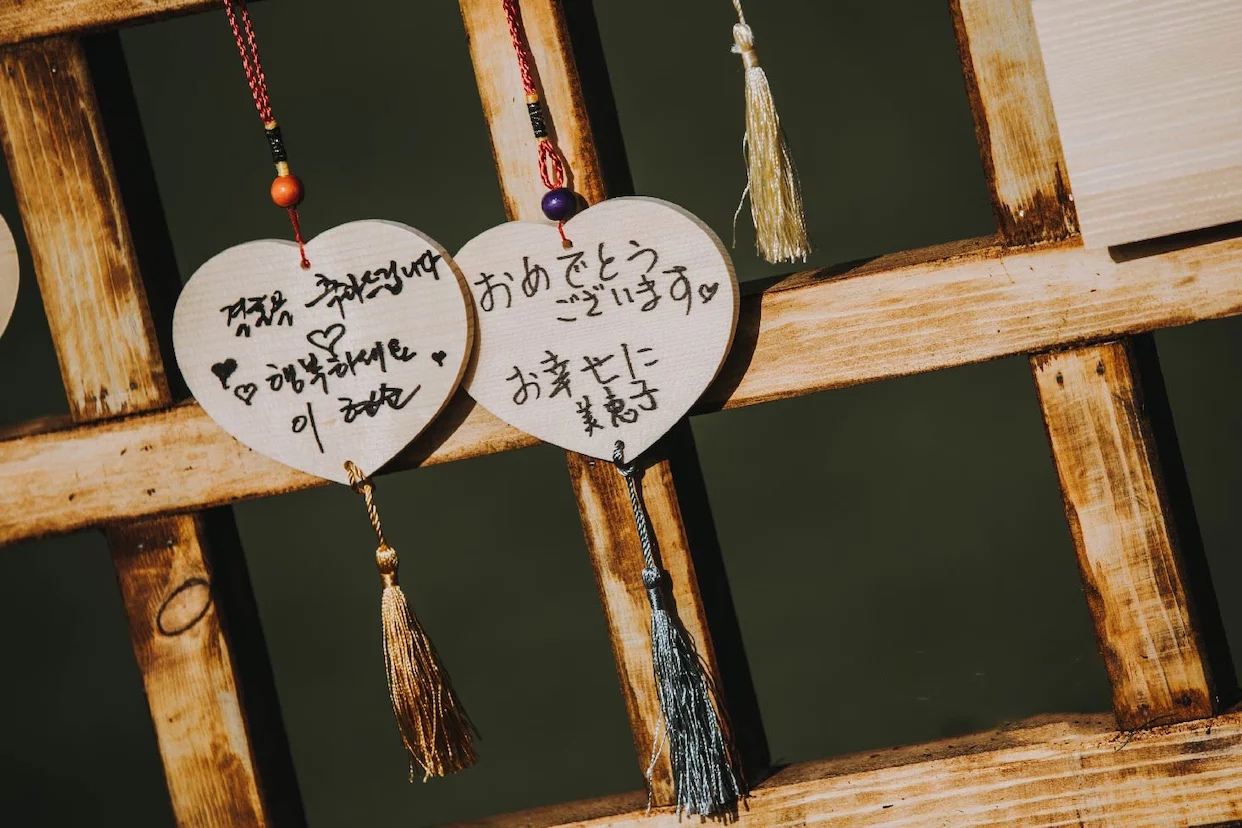 결혼을 축하드립니다
행복하세요
이
おめでとう
ございます
お幸せに
美恵子